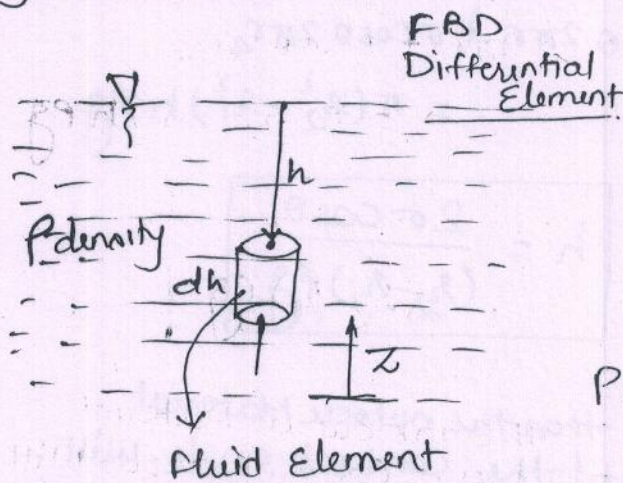 FBD
Differential
Element
h
ρ density
dh
z
P
Fluid Element